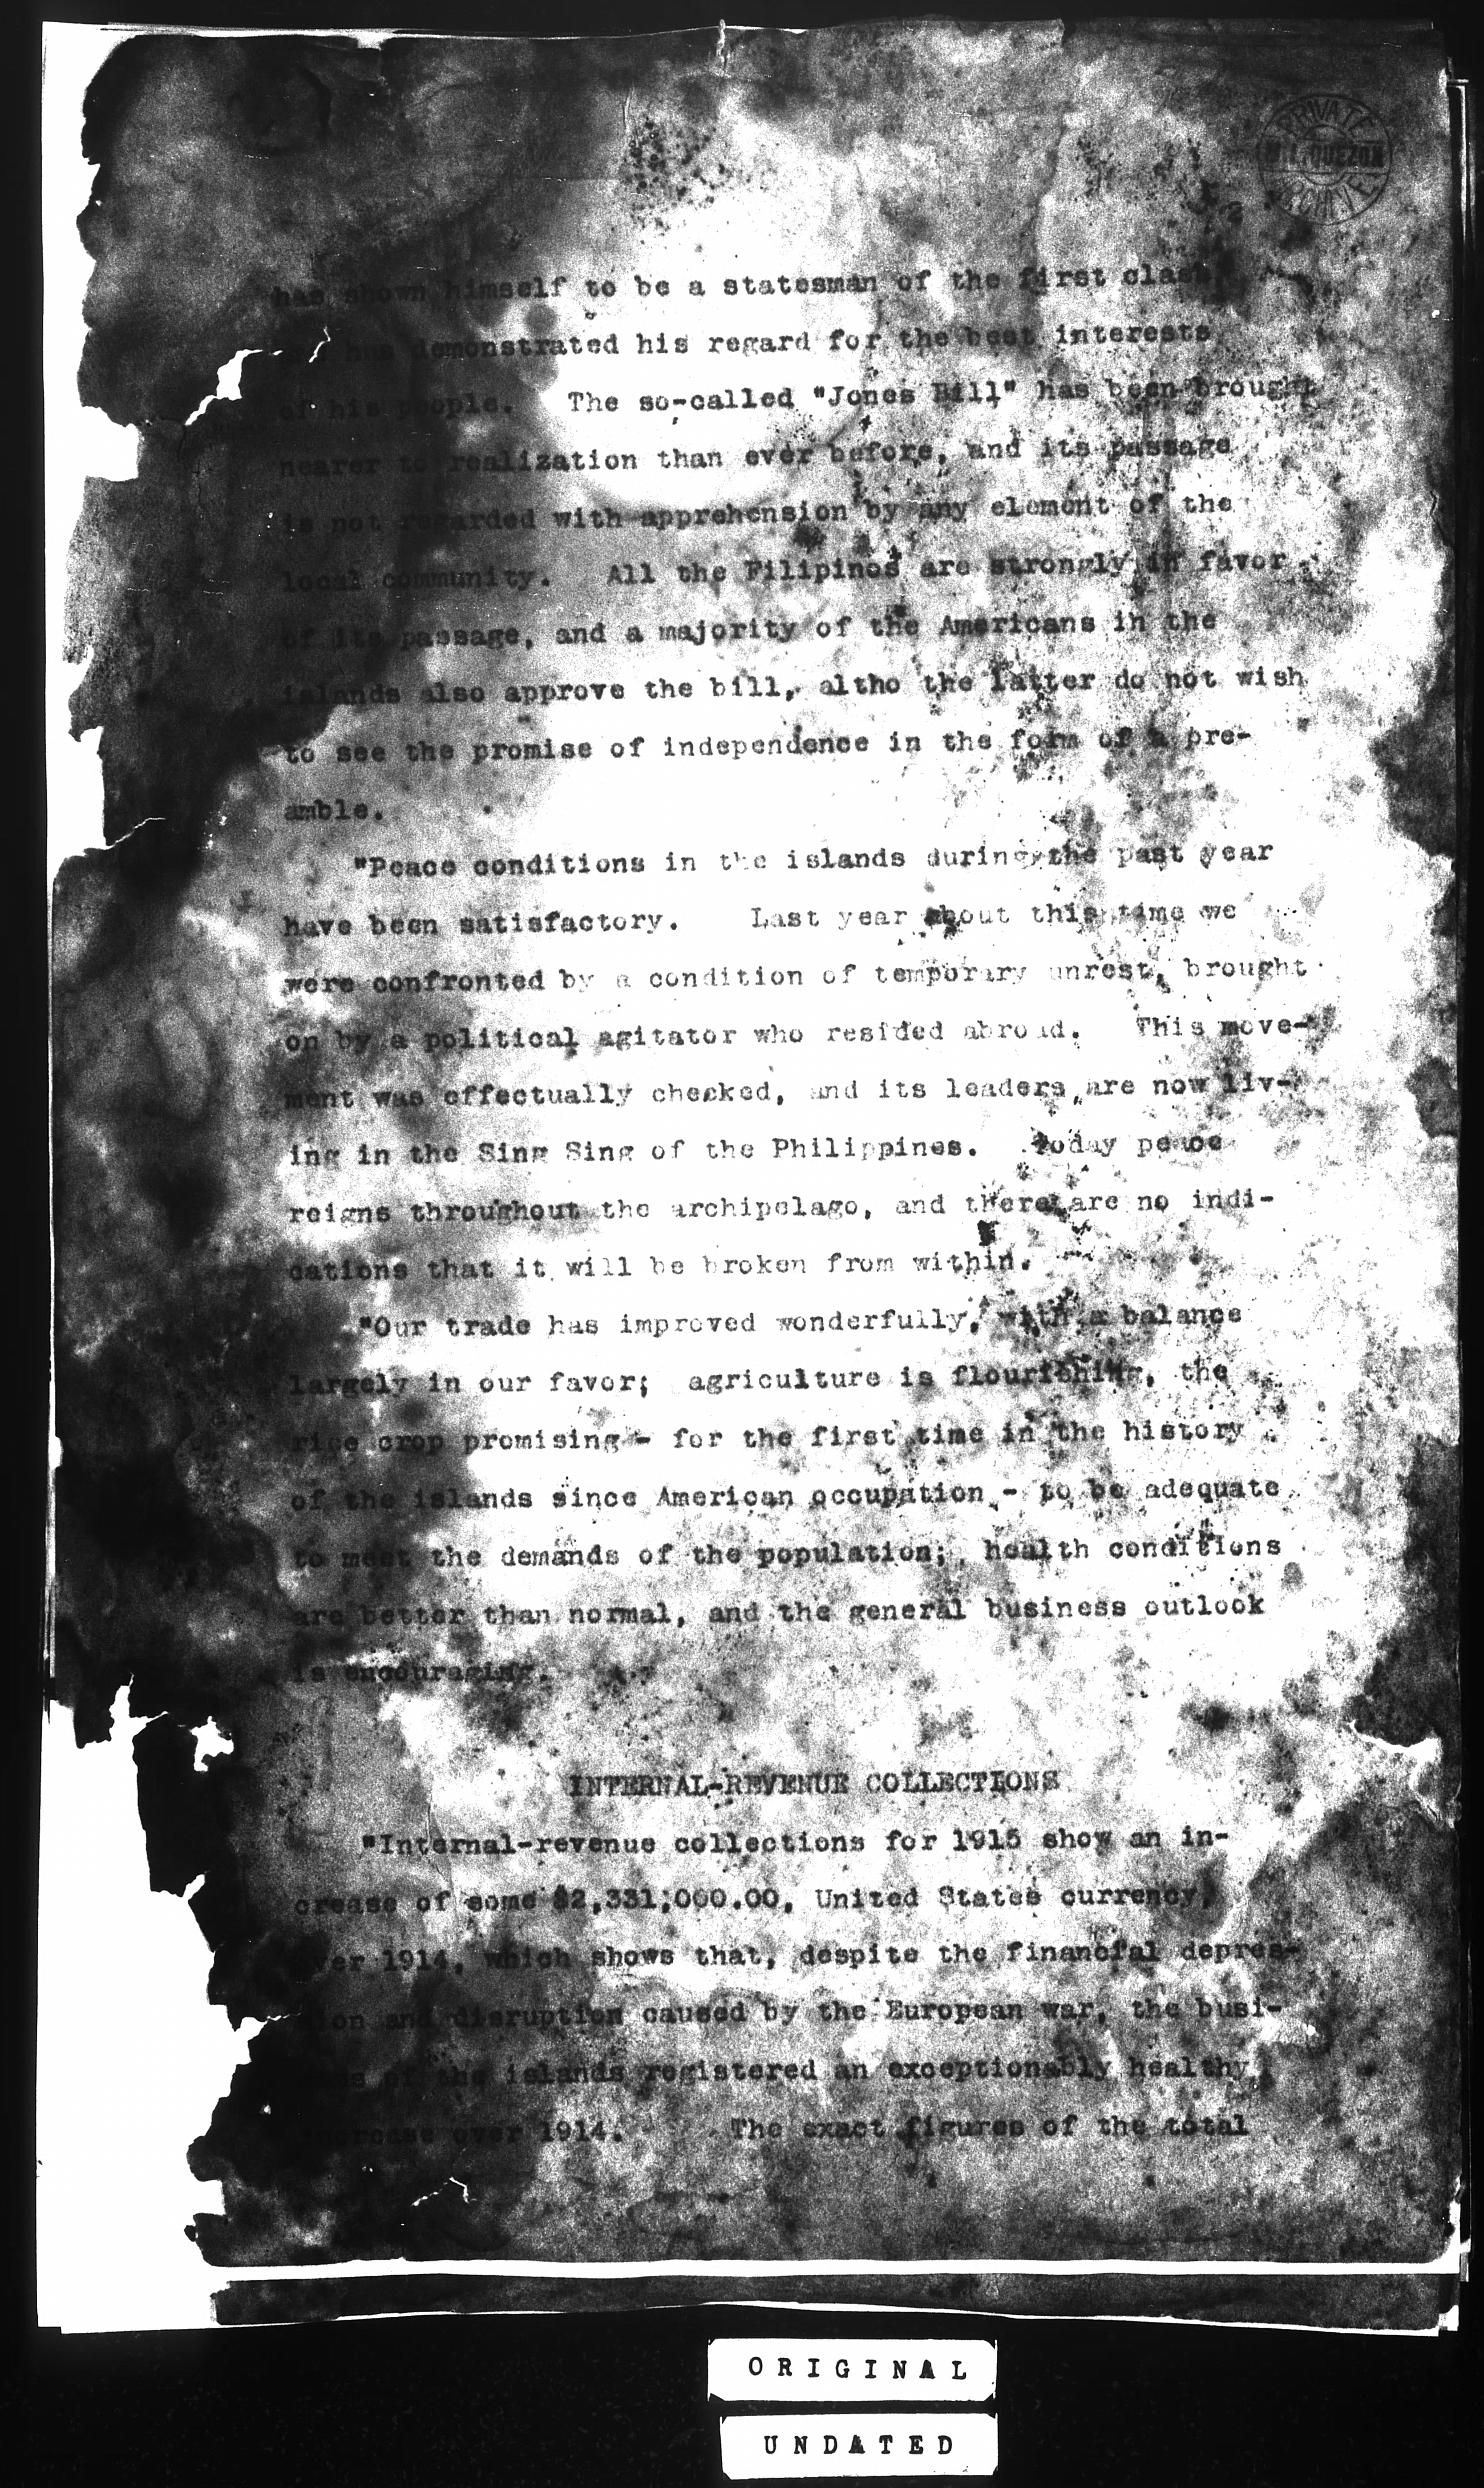 PRIVATE
M. L. QUEZON
ARCHIVES
has shown himself to be a statesman of the first class
has demonstrated his regard for the best interests
of his people. The so-called "Jones Bill" has been brought
nearer to realization than ever before, and its passage
is not regarded with apprehension by any element of the
local community. All the Filipinos are strongly in favor
of its passage, and a majority of the Americans in the
islands also approve the bill, altho the latter do not wish
to see the promise of independence in the form of a pre-
amble.
"Peace conditions in the islands during the past year
have been satisfactory. Last year about this time we
were confronted by a condition of temporary unrest, brought
on by a political agitator who resided abroad. This move-
ment was effectually checked, and its leaders are now liv-
ing in the Sing Sing of the Philippines. Today peace
reigns throughout the archipelago, and there are no indi-
cations that it will be broken from within.
"Our trade has improved wonderfully, with a balance
largely in our favor; agriculture is flourishing, the
rice crop promising - for the first time in the history
of the islands since American occupation - to be adequate
to meet the demands of the population; health conditions
are better than normal, and the general business outlook
is encouraging.
INTERNAL-REVENUE COLLECTIONS
"Internal-revenue collections for 1915 show an in-
crease of some $2,331,000.00, United States currency,
over 1914, which shows that, despite the financial depres-
sion and disruption caused by the European war, the busi-
ness of the islands registered an exceptionably healthy
increase over 1914. The exact figures of the total
ORIGINAL
UNDATED